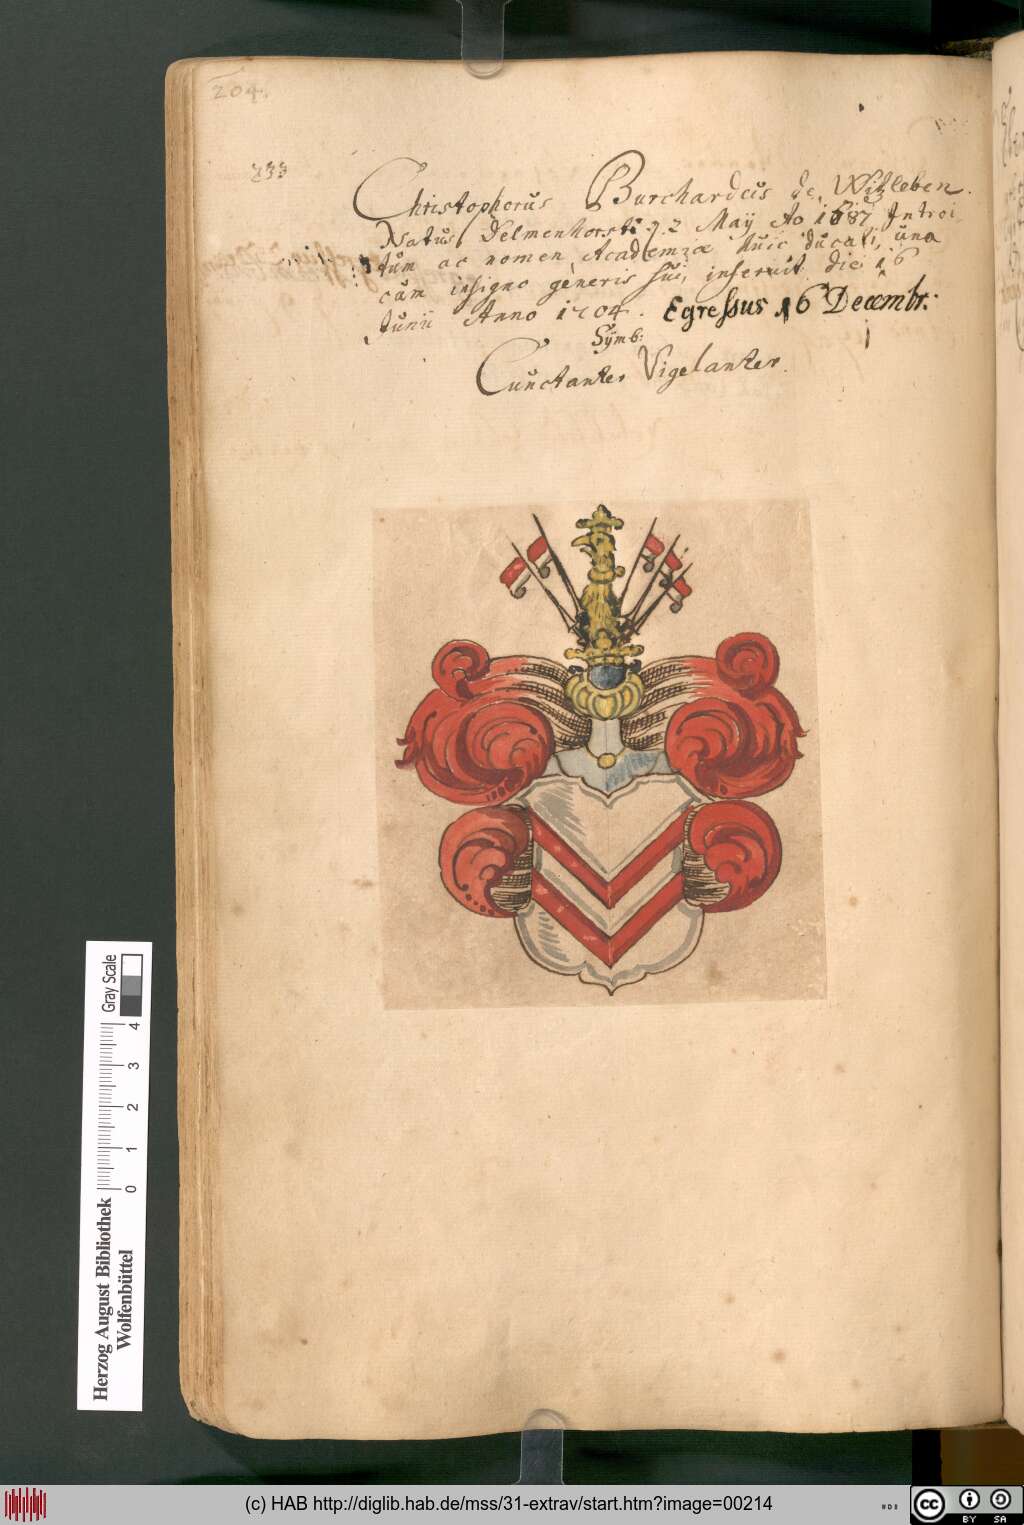 204.
233
Christophorus Burchardus de Witzleben.
Natus Delmenhorsti d. 2 Maÿ Ao 1687 Introi
tum ac nomen Academiæ huic ducali, una
cum insigno generis sui, inseruit die 16
Junii Anno 1704. Egressus 16 Decembr:
Sÿmb:
Cunctanter Vigelanter.
Gray Scale
0 1 2 3 4
Herzog August Bibliothek
Wolfenbüttel
(c) HAB http://diglib.hab.de/mss/31-extrav/start.htm?image=00214
cc
BY SA